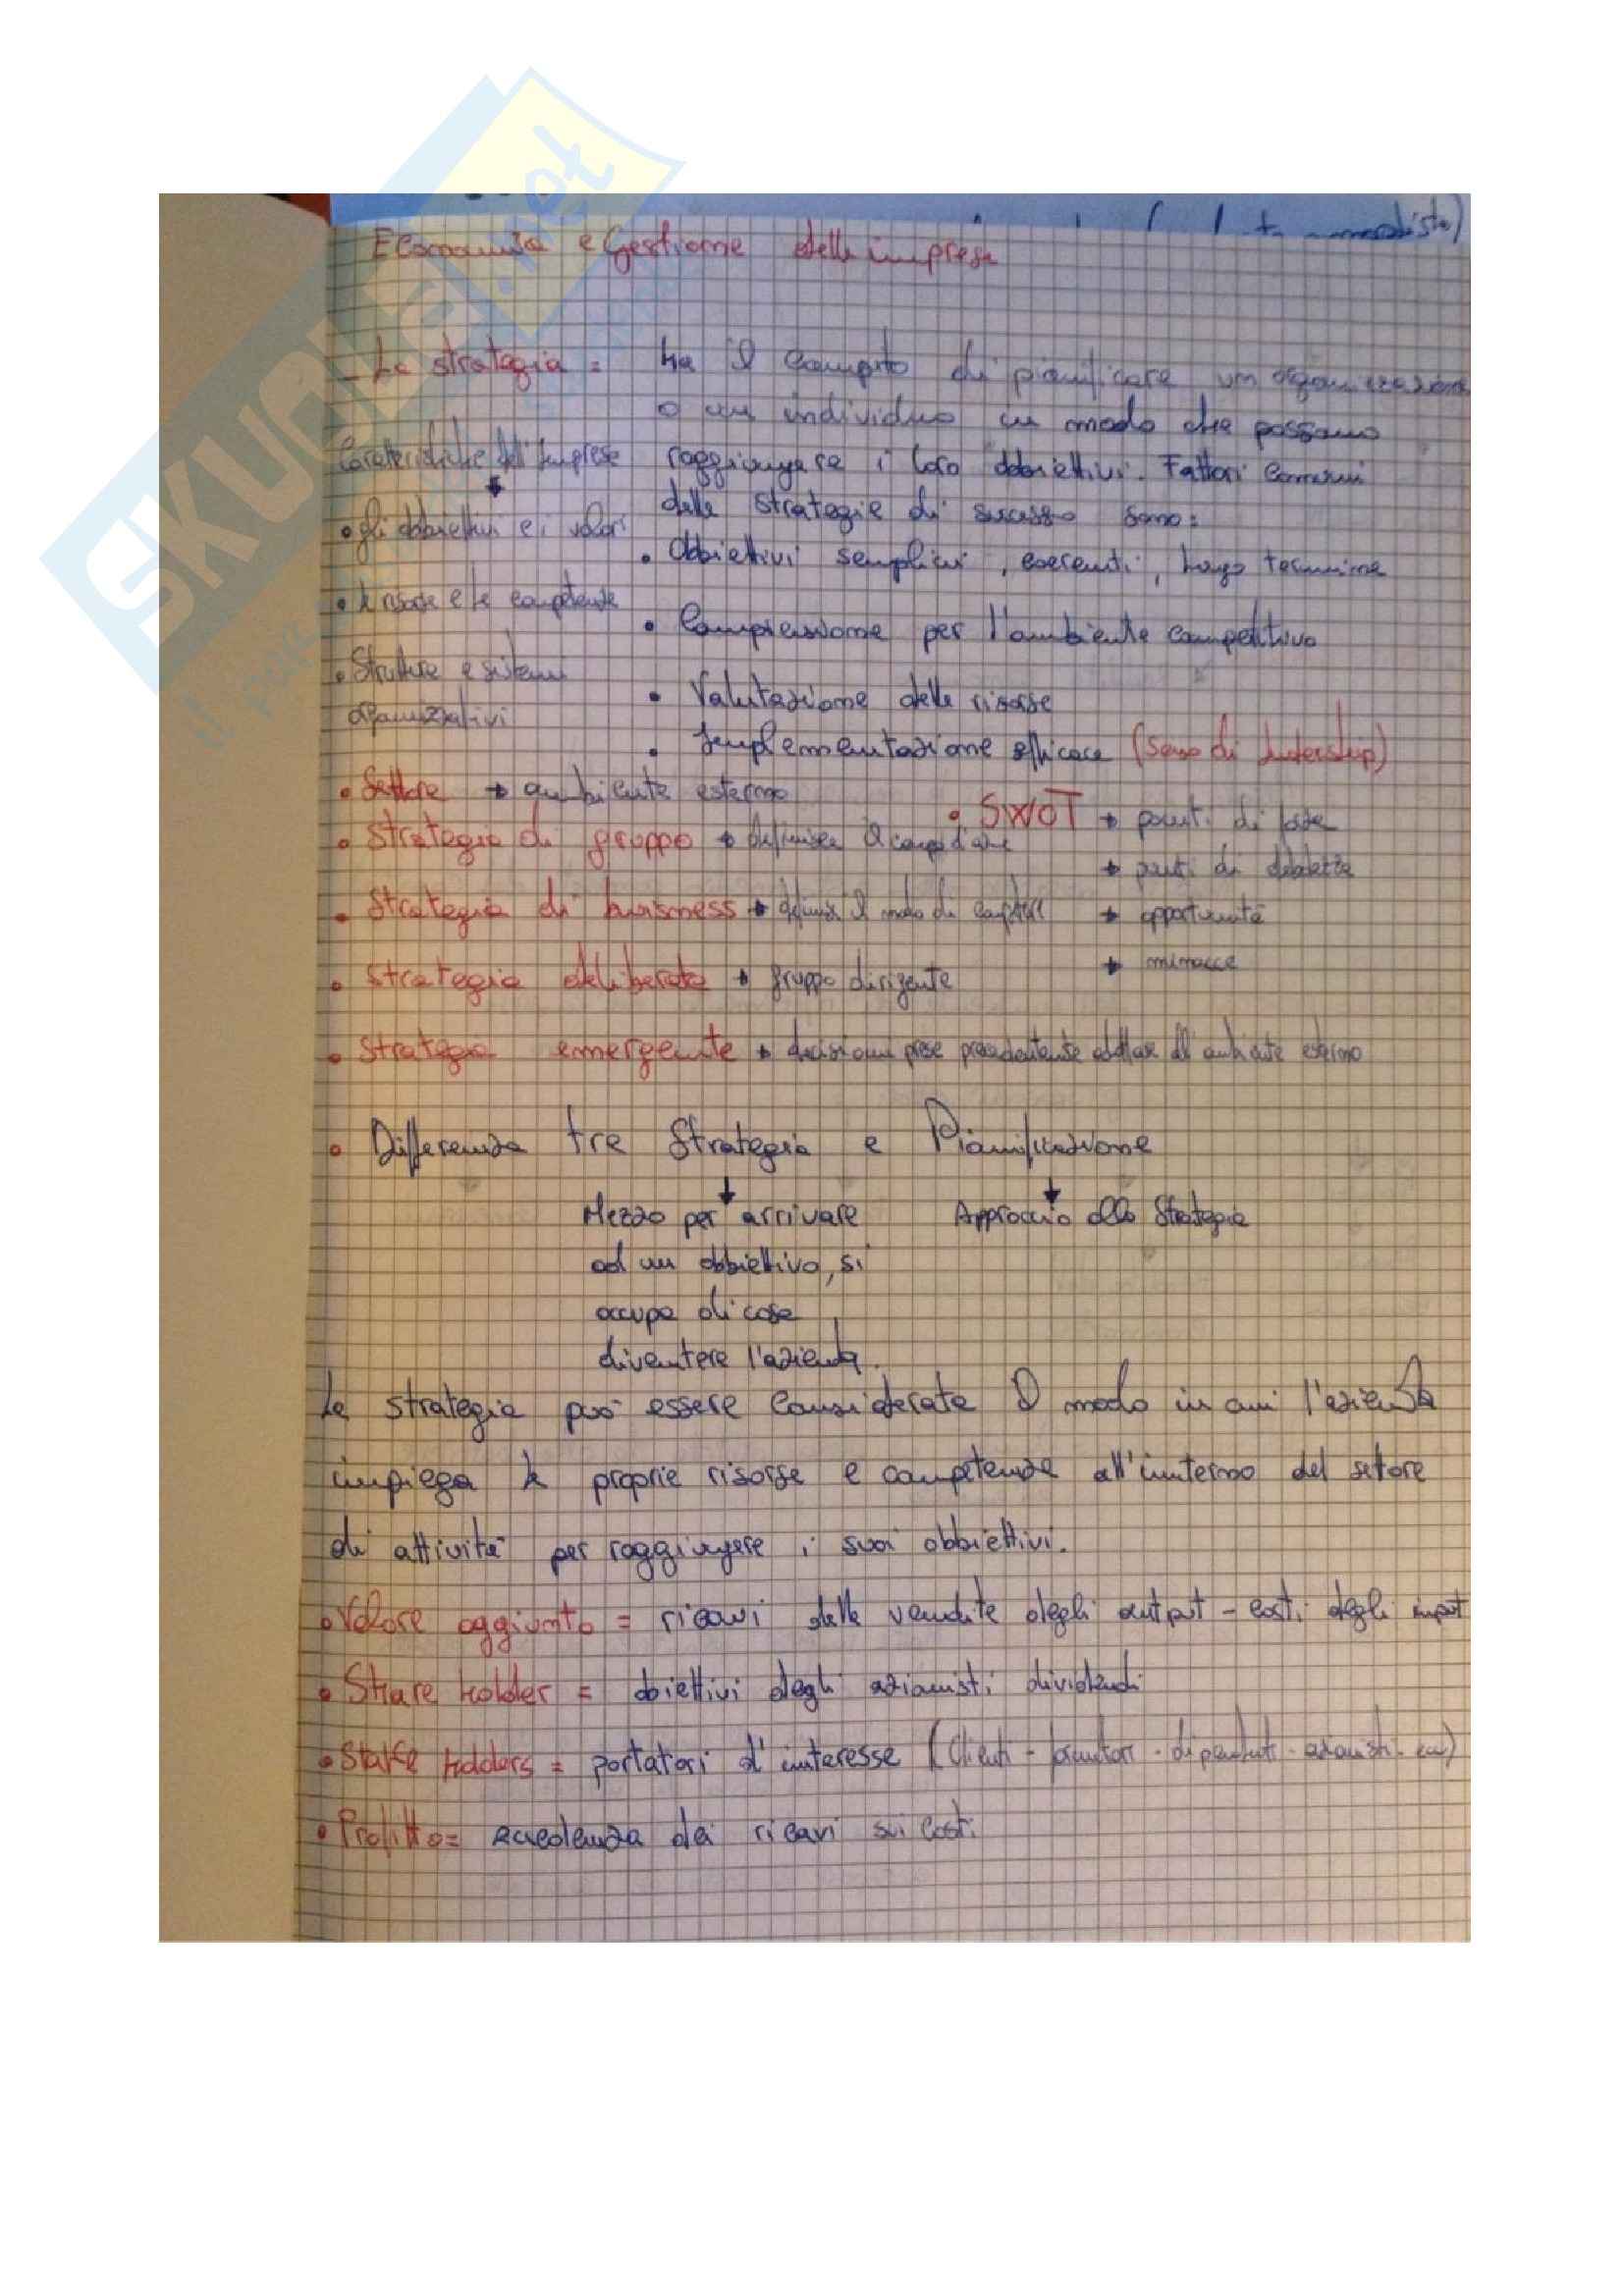 Economia e Gestione delle imprese
- La strategia = ha il compito di pianificare un organizzazione
o un individuo in modo che possano
raggiungere i loro obbiettivi. Fattori comuni
delle strategie di successo sono:
• Obbiettivi semplici, coerenti, lungo termine
• Comprensione per l'ambiente competitivo
• Valutazione delle risorse
• Implementazione efficace (senso di leadership)
Caratteristiche dell'imprese
• gli obbiettivi e i valori
• le risorse e le competenze
• Strutture e sistemi
organizzativi
• Settore → ambiente esterno
• Strategia di gruppo → definisce il
• Strategia di buisness → il modo di
• Strategia deliberata → gruppo dirigente
• Strategia emergente → decisioni prese ambiente esterno
• SWOT → punti di forza
→ punti di debolezza
→ opportunità
→ minacce
• Differenza tra Strategia e Pianificazione
Mezzo per arrivare
ad un obbiettivo, si
occupa di cosa
diventere l'azienda.
Approccio alla Strategia
La strategia può essere considerata il modo in cui l'azienda
impiega le proprie risorse e competenze all'interno del setore
di attività per raggiungere i suoi obbiettivi.
• Valore aggiunto = ricavi delle vendite degli output - costi degli input
• Share holder = obiettivi degli azionisti dividendi
• Stake holders = portatori d'interesse (Clienti - fornitori - dipendenti - azionisti
• Profitto = eccedenza dei ricavi sui costi
SKUOLA.net